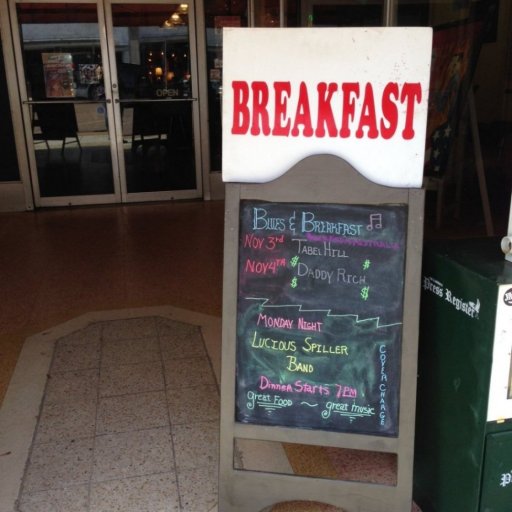 OPEN
BREAKFAST
BLUES & BREAKFAST
NOV 3rd TABEL HILL
NOV 4TH DADDY RICH
$ $ $ $
MONDAY NIGHT
LUCIOUS SPILLER
BAND
DINNER STARTS 7PM
great FOOD ~ great music
COVER CHARGE
Press Register